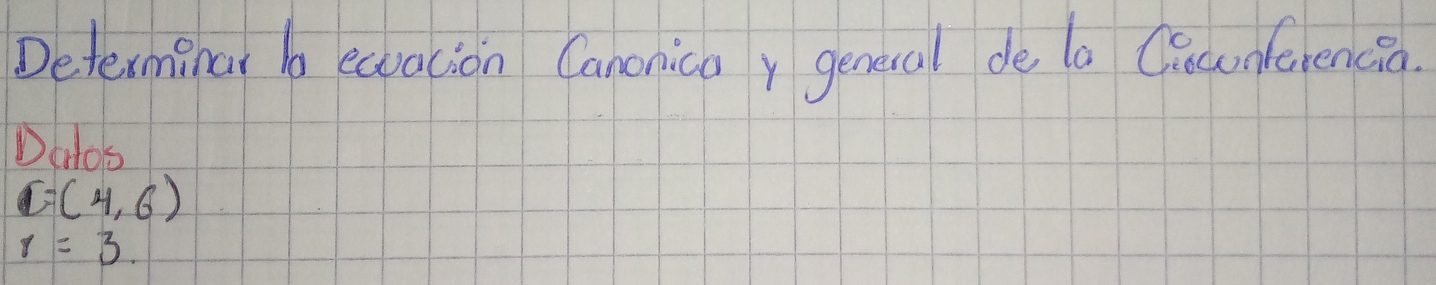 Determinar la ecuación Canonica y general de la Circunferencia.
Datos
C=(4,6)
r = 3.